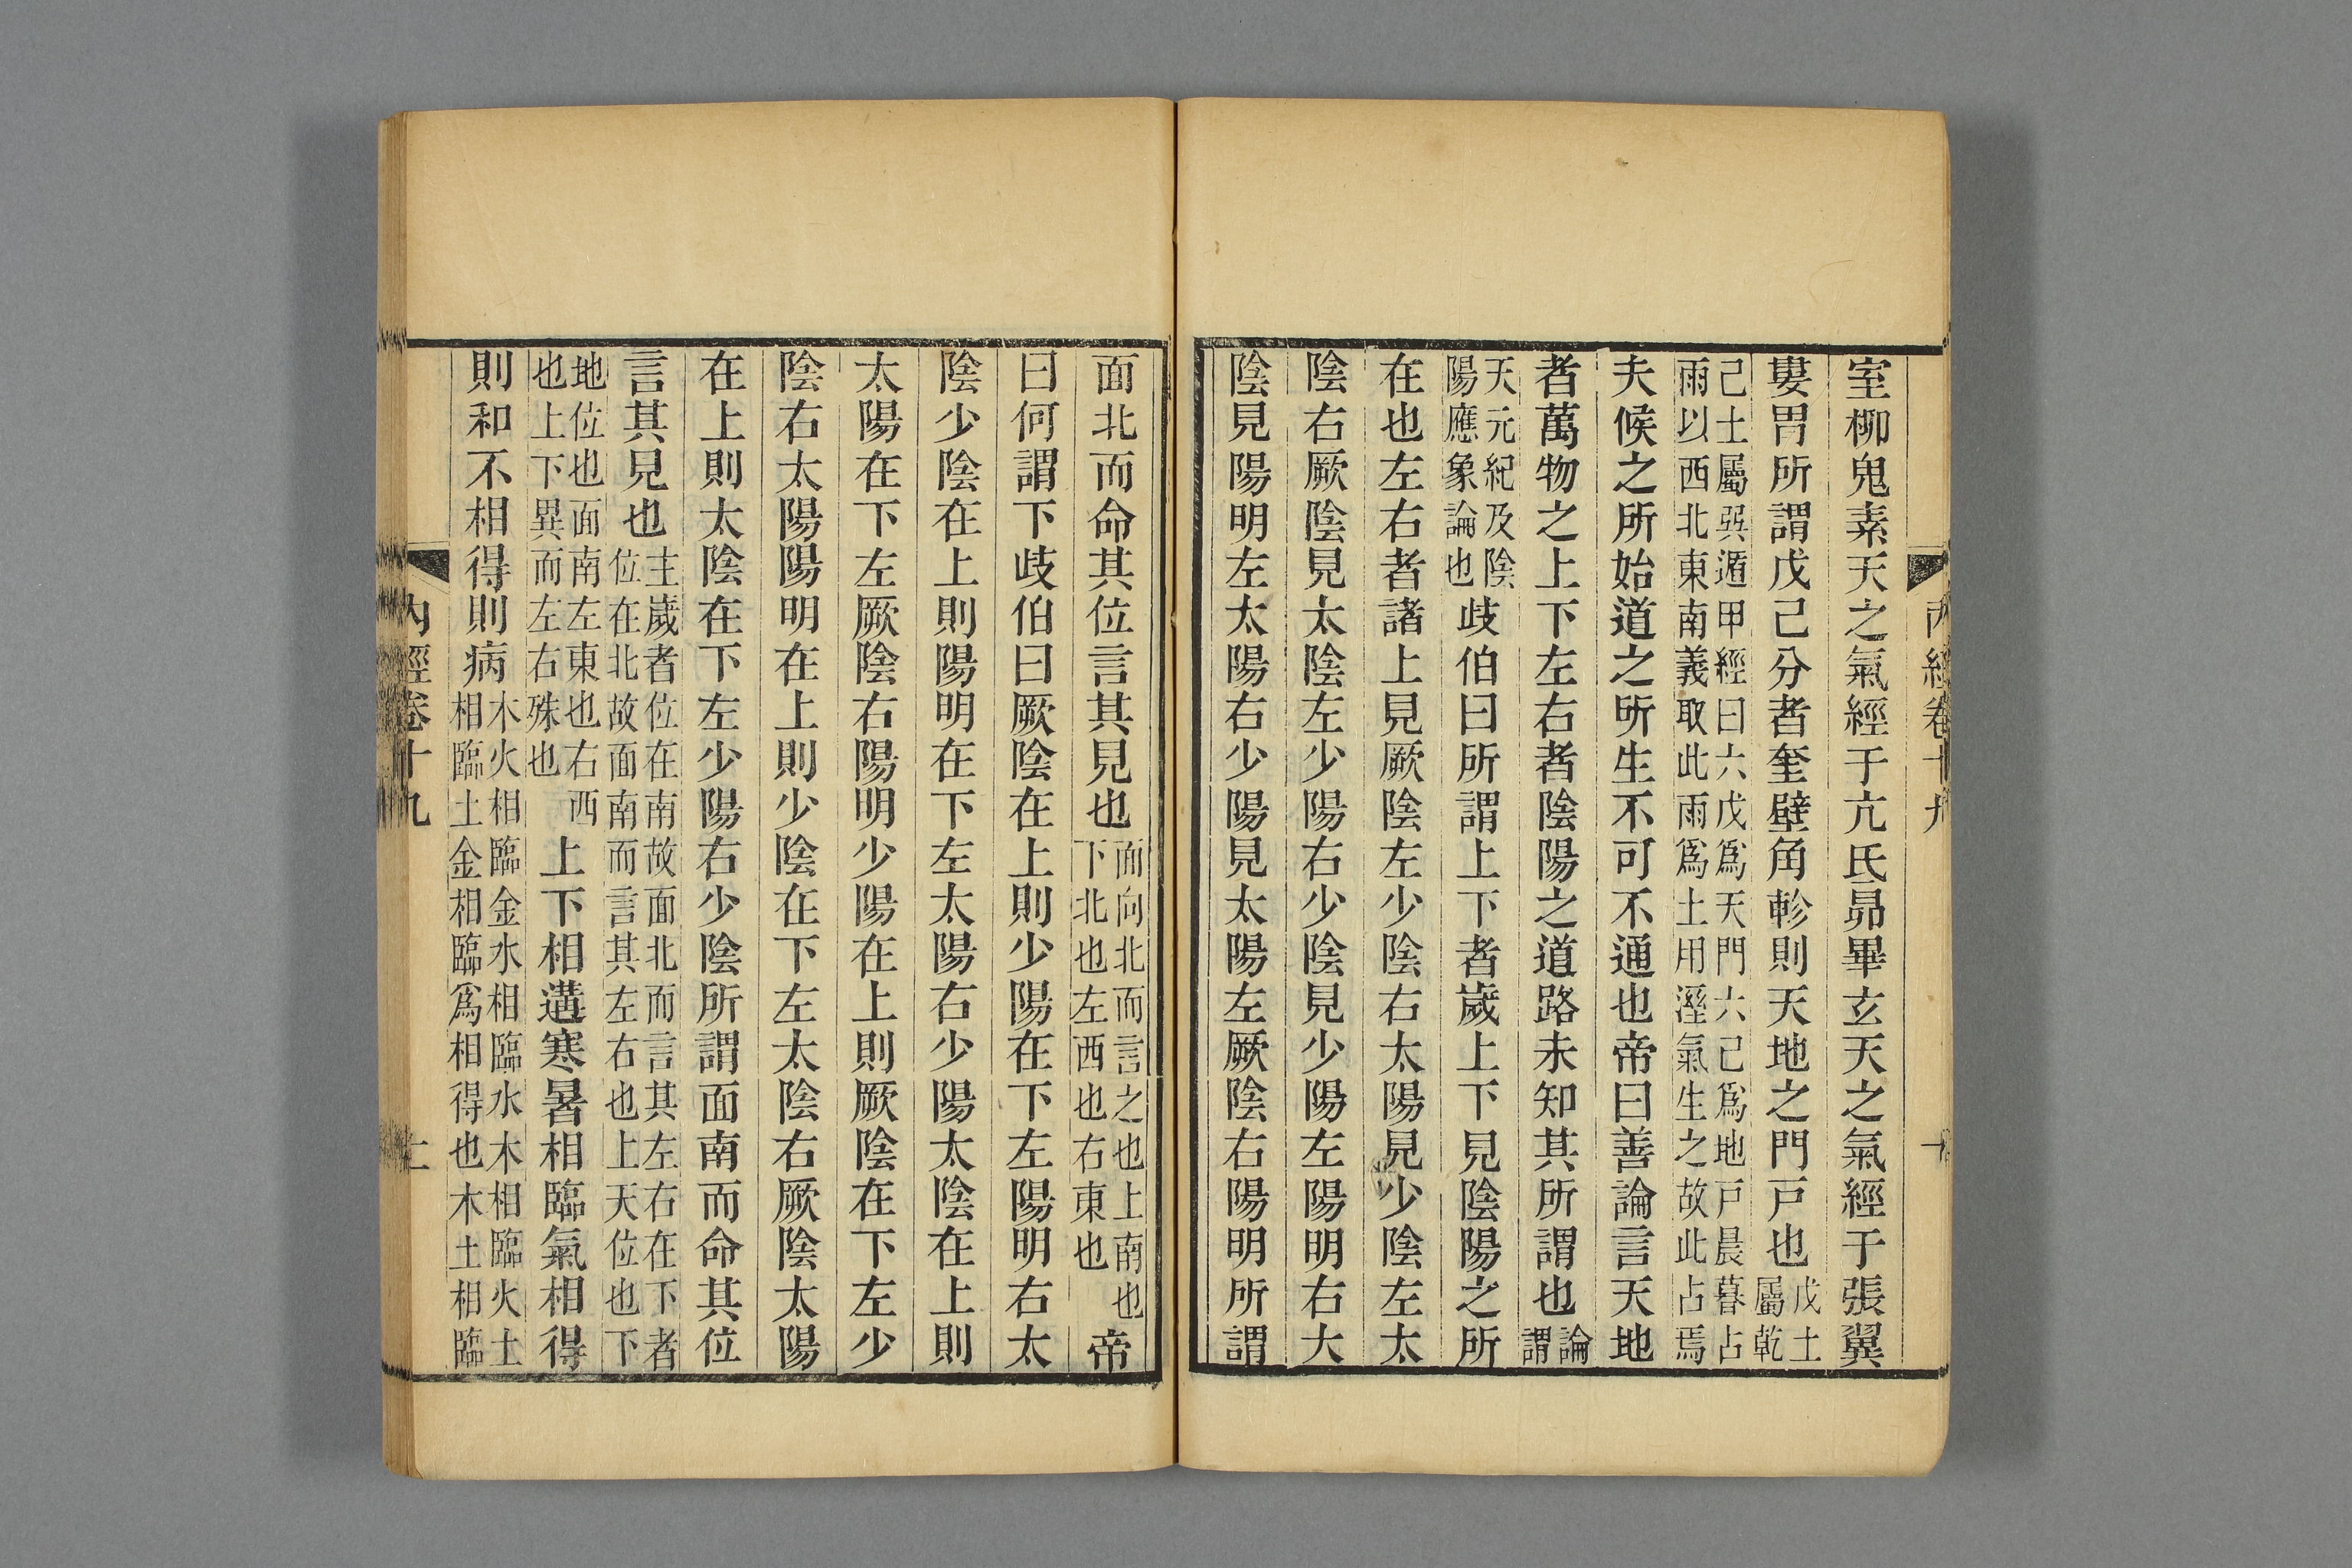 內經卷十九 十
室柳鬼素天之氣經于亢氐昴畢玄天之氣經于張翼
婁胃所謂戊己分者奎壁角軫則天地之門戶也戊土
屬乾
己土屬巽遁甲經曰六戊爲天門六己爲地戶晨暮占
雨以西北東南義取此雨爲土用溼氣生之故此占焉
夫候之所始道之所生不可不通也帝曰善論言天地
者萬物之上下左右者陰陽之道路未知其所謂也論
謂
天元紀及陰
陽應象論也歧伯曰所謂上下者歲上下見陰陽之所
在也左右者諸上見厥陰左少陰右太陽見少陰左太
陰右厥陰見太陰左少陽右少陰見少陽左陽明右大
陰見陽明左太陽右少陽見太陽左厥陰右陽明所謂
面北而命其位言其見也面向北而言之也上南也
下北也左西也右東也帝
曰何謂下歧伯曰厥陰在上則少陽在下左陽明右太
陰少陰在上則陽明在下左太陽右少陽太陰在上則
太陽在下左厥陰右陽明少陽在上則厥陰在下左少
陰右太陽陽明在上則少陰在下左太陰右厥陰太陽
在上則太陰在下左少陽右少陰所謂面南而命其位
言其見也主歲者位在南故面北而言其左右在下者
位在北故面南而言其左右也上天位也下
地位也面南左東也右西
也上下異而左右殊也上下相遘寒暑相臨氣相得
則和不相得則病木火相臨金水相臨水木相臨火土
相臨土金相臨爲相得也木土相臨
內經卷十九